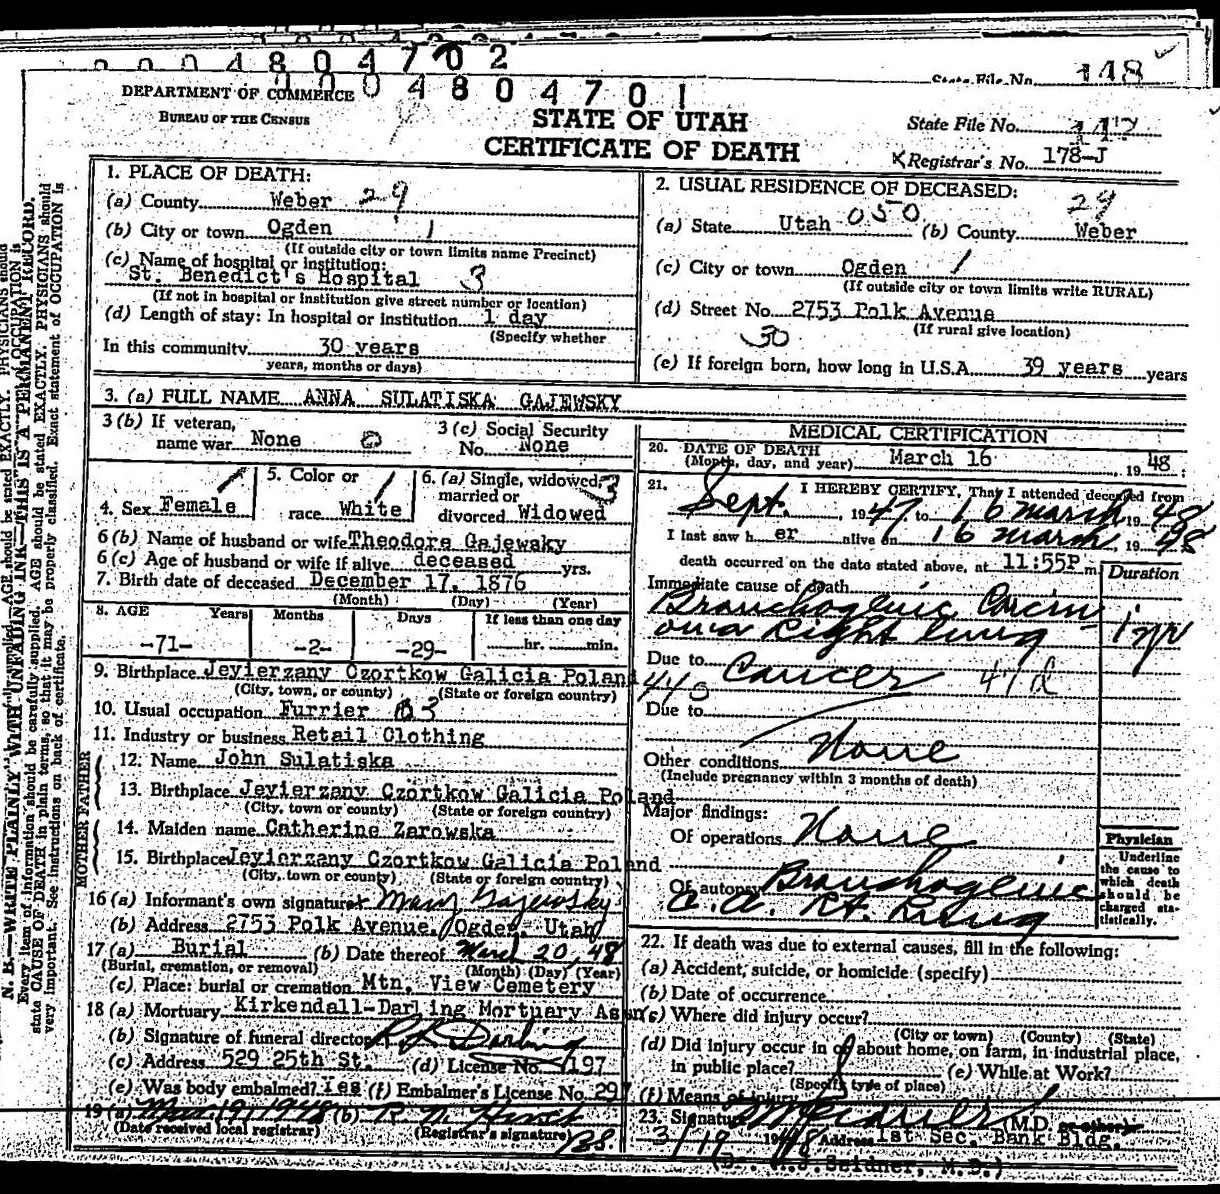 0004804702
State File No. 148
DEPARTMENT OF COMMERCE
0004804701
BUREAU OF THE CENSUS
STATE OF UTAH
CERTIFICATE OF DEATH
State File No.
Registrar's No. 178-J
1. PLACE OF DEATH:
(a) County Weber 29
(b) City or town Ogden 1
(If outside city or town limits name Precinct)
(c) Name of hospital or institution:
St. Benedict's Hospital 3
(If not in hospital or institution give street number or location)
(d) Length of stay: In hospital or institution 1 day
(Specify whether
In this community 30 years
years, months or days)
2. USUAL RESIDENCE OF DECEASED:
29
(a) State Utah 050 (b) County Weber
(c) City or town Ogden 1
(If outside city or town limits write RURAL)
(d) Street No. 2753 Polk Avenue
(If rural give location)
30
(e) If foreign born, how long in U.S.A. 39 years years
3. (a) FULL NAME ANNA SULATISKA GAJEWSKY
3 (b) If veteran,
name war None 0
3 (c) Social Security
No. None
4. Sex Female
5. Color or
race White
6. (a) Single, widowed, 3
married or
divorced Widowed
6 (b) Name of husband or wife Theodore Gajewsky
6 (c) Age of husband or wife if alive deceased yrs.
7. Birth date of deceased December 17, 1876
(Month) (Day) (Year)
8. AGE Years Months Days If less than one day
-71- -2- -29- hr. min.
9. Birthplace Jeyierzany Czortkow Galicia Poland
(City, town, or county) (State or foreign country)
10. Usual occupation Furrier
11. Industry or business Retail Clothing
FATHER
12. Name John Sulatiska
13. Birthplace Jeyierzany Czortkow Galicia Poland
(City, town or county) (State or foreign country)
MOTHER
14. Maiden name Catherine Zarowska
15. Birthplace Jeyierzany Czortkow Galicia Poland
(City, town or county) (State or foreign country)
16 (a) Informant's own signature Mary Gajewsky
(b) Address 2753 Polk Avenue, Ogden, Utah
17 (a) Burial (b) Date thereof March 20, 48
(Burial, cremation, or removal) (Month) (Day) (Year)
(c) Place: burial or cremation Mtn. View Cemetery
18 (a) Mortuary Kirkendall-Darling Mortuary Assn
(b) Signature of funeral director Darling
(c) Address 529 25th St. (d) License No. 197
(e) Was body embalmed? Yes (f) Embalmer's License No. 297
19 (a) Mar. 19, 1948 (b)
(Date received local registrar) (Registrar's signature)
MEDICAL CERTIFICATION
20. DATE OF DEATH
(Month, day, and year) March 16, 1948
21. I HEREBY CERTIFY, That I attended deceased from
Sept. 1947 to 16 March 1948
I last saw her alive on 16 March, 1948
death occurred on the date stated above, at 11:55P m.
Duration
Immediate cause of death
Branchogenic Carcin
oma right lung 1 yr
Due to Cancer 47d
Due to
Other conditions None
(Include pregnancy within 3 months of death)
Major findings:
Of operations None
Of autopsy Branchogenic
C.A. Rt. Lung
Physician
Underline
the cause to
which death
should be
charged sta-
tistically.
22. If death was due to external causes, fill in the following:
(a) Accident, suicide, or homicide (specify)
(b) Date of occurrence
(c) Where did injury occur?
(City or town) (County) (State)
(d) Did injury occur in or about home, on farm, in industrial place,
in public place? (e) While at Work?
(Specify type of place)
(f) Means of injury
23. Signature (M.D. or other)
3/19 1948 Address 1st Sec. Bank Bldg.
Seidner, M.D.)
N. B.—WRITE PLAINLY WITH UNFADING INK—THIS IS A PERMANENT RECORD.
Every item of information should be carefully supplied. AGE should be stated EXACTLY. PHYSICIANS should
state CAUSE OF DEATH in plain terms, so that it may be properly classified. Exact statement of OCCUPATION is
very important. See instructions on back of certificate.